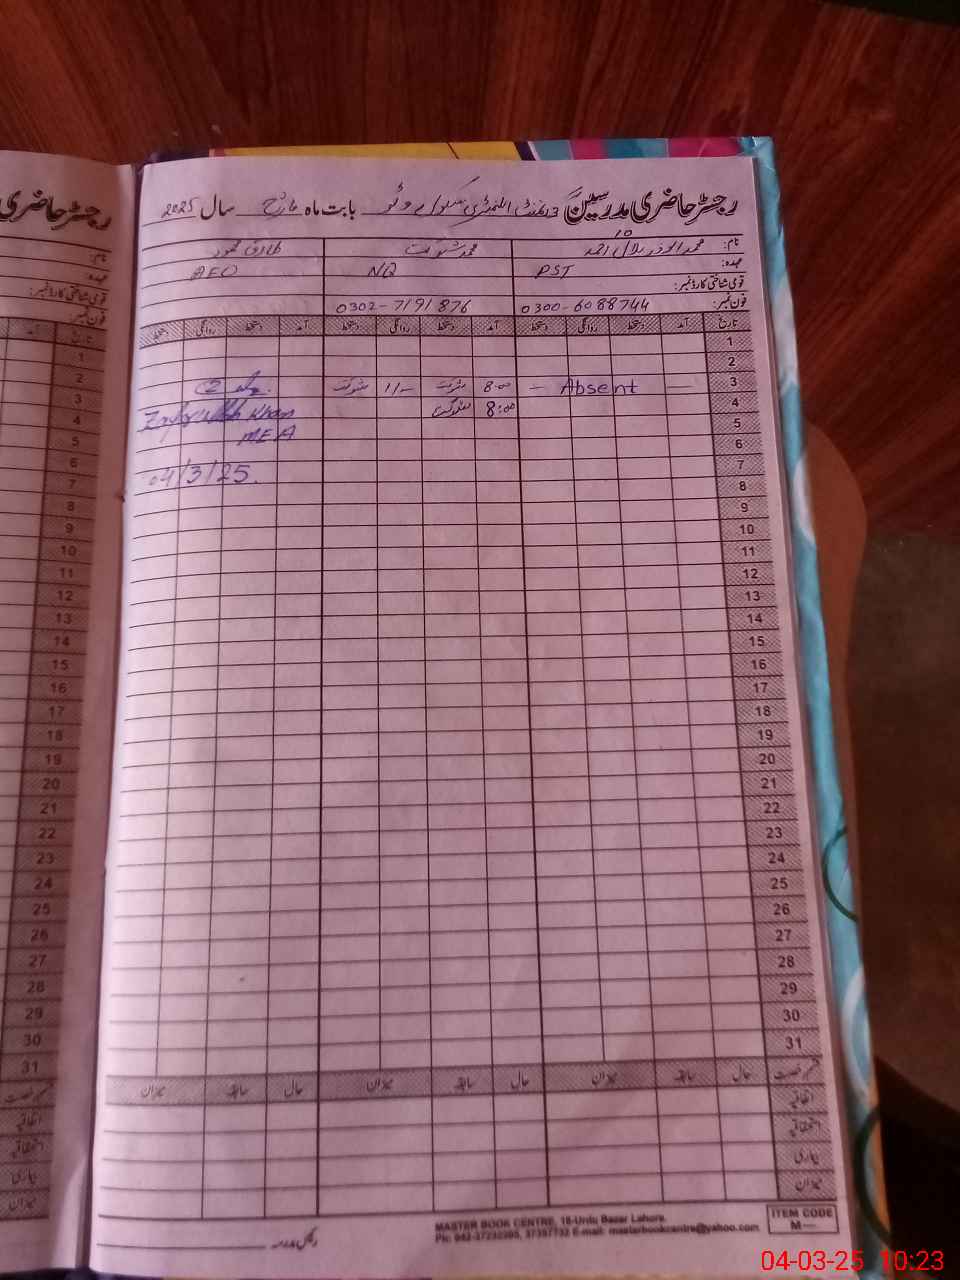 رجسٹر حاضری مدرسین گورنمنٹ ایلیمنٹری سکول وٹو بابت ماہ مارچ سال 2025
رجسٹر حاضری
نام: احمد محمد شوکت طارق محمود
عہدہ: PST NQ AEO
قومی شناختی کارڈ نمبر:
فون نمبر: 0300-6088744 0302-7191876
تاریخ آمد دستخط روانگی دستخط آمد دستخط روانگی دستخط آمد دستخط روانگی دستخط
1
2
3 — Absent — 8:00 شوکت 11/- شوکت
4 8:00 شوکت Zafarullah Khan
5 MEA
6
7 04/3/25.
8
9
10
11
12
13
14
15
16
17
18
19
20
21
22
23
24
25
26
27
28
29
30
31
قسم رخصت حال سابقہ میزان حال سابقہ میزان حال سابقہ میزان
اتفاقیہ
استحقاقیہ
بیماری
میزان
رئیس مدرسہ
MASTER BOOK CENTRE, 18-Urdu Bazar Lahore.
Ph: 042-37232395, 37357732 E-mail: masterbookcentre@yahoo.com
ITEM CODE
M—
04-03-25 10:23